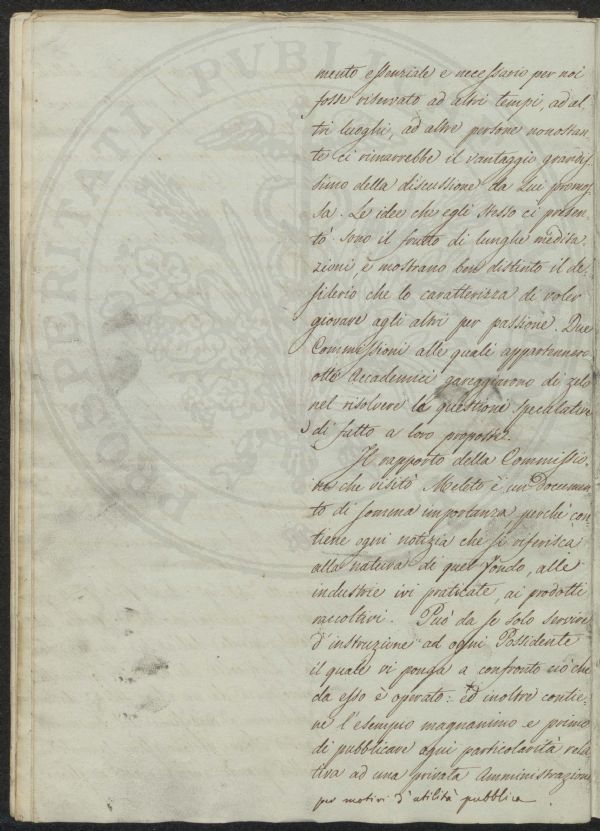 PROSPERITATI PUBLI
mento essenziale e necessario per noi
fosse riservato ad altri tempi, ad al
tri luoghi, ad altre persone nonostan
te ci rimarrebbe il vantaggio grandis
simo della discussione da lui promos
sa. Le idee che egli stesso ci presen
tò sono il frutto di lunghe medita
zioni, e mostrano ben distinto il de
siderio che lo caratterizza di voler
giovare agli altri per passione. Due
Commissioni alle quali appartennero
otto Accademici gareggiarono di zelo
nel risolvere le questione speculative
di fatto a loro proposte.
Il rapporto della Commissio
ne che visitò Meleto è un Documen
to di somma importanza perchè con
tiene ogni notizia che si riferisca
alla natura di quel fondo, alle
industrie ivi praticate, ai prodotti
raccoltivi. Può da se solo servire
d'instruzione ad ogni Possidente
il quale vi ponga a confronto ciò che
da esso è operato: ed inoltre contie
ne l'esempio magnanimo e primo
di pubblicare ogni particolarità rela
tiva ad una privata Amministrazione
per motivi d'utilità pubblica.